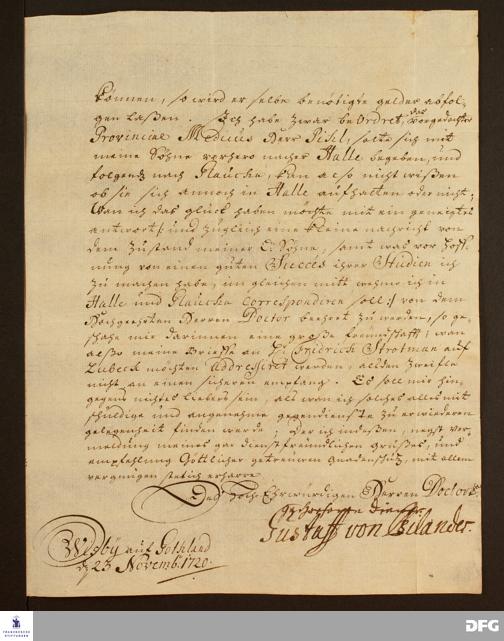 können, so wird er selbe benötigte gelder abfol-
gen laßen. Ich habe zwar beordret, das vorgedachter
Provincial Medicus Herr Pihl, solte sich mit
meine Söhne vorhero nacher Halle begeben, und
folgends nach Glaucha, kan also nicht wißen
ob sie sich annoch in Halle aufhalten oder nicht;
Wan ich das glück haben möchte mit ein geneigtes
antwort und zugleich eine kleine nachricht von
dem Zustand meiner Söhne, samt was vor Hoff-
nung von einen guten Succes ihrer Studien ich
zu machen habe, im gleichen mit wehme ich in
Halle und Glaucha correspondiren soll: von dem
Hochgeehrten Herren Doctor beehret zu werden, so ge-
schähe mir darinnen eine große freundschafft; wan
also meine Brieffe an Fridrich Strotman auf
Lübeck möchten addressiret werden, alsden zweifle
nicht an einen sicheren empfang. Es soll mir hin-
gegen nichtes liebers sein, als wan ich solches alles mit
schuldige und angenehme gegendienste zu erwiederen
gelegenheit finden werde; der ich indeßen, negst ver-
meldung meines gar dienstfreundlichen grußes, und
empfehlung Göttlicher getreuen gnadenschutz, mit allem
vergnügen stetich erharre
Des Hoch Ehrwürdigen Herren Doctors
gehorsamer Diener
Gustaff von Psilander.
Wisby auf Gothland
d 23 Novemb. 1720.
FRANCKESCHE
STIFTUNGEN
DFG